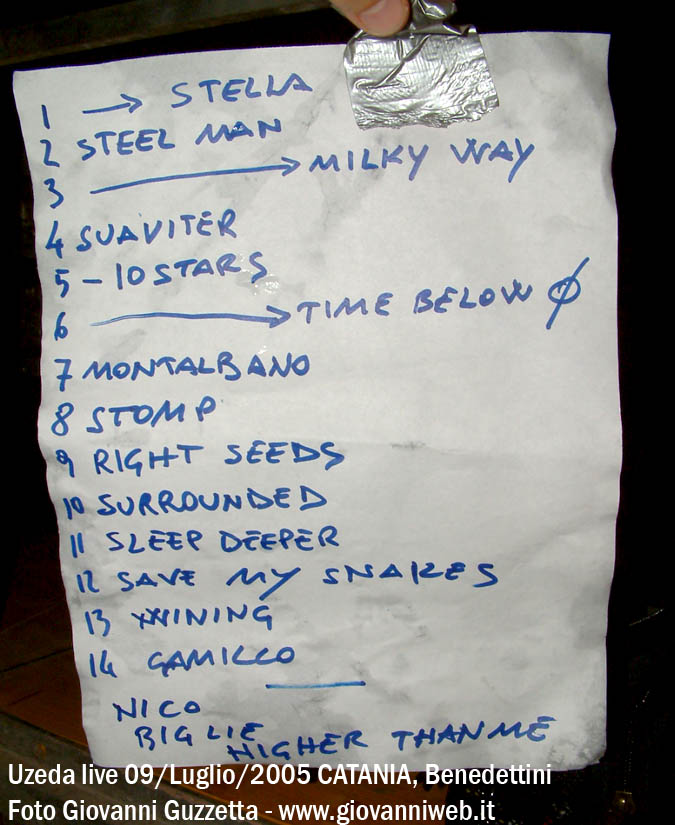 1 → STELLA
2 STEEL MAN
3 → MILKY WAY
4 SUAVITER
5 - 10 STARS
6 → TIME BELOW Ø
7 MONTALBANO
8 STOMP
9 RIGHT SEEDS
10 SURROUNDED
11 SLEEP DEEPER
12 SAVE MY SNAKES
13 WINING
14 CAMILLO
NICO
BIG LIE
HIGHER THAN ME
Uzeda live 09/Luglio/2005 CATANIA, Benedettini
Foto Giovanni Guzzetta - www.giovanniweb.it